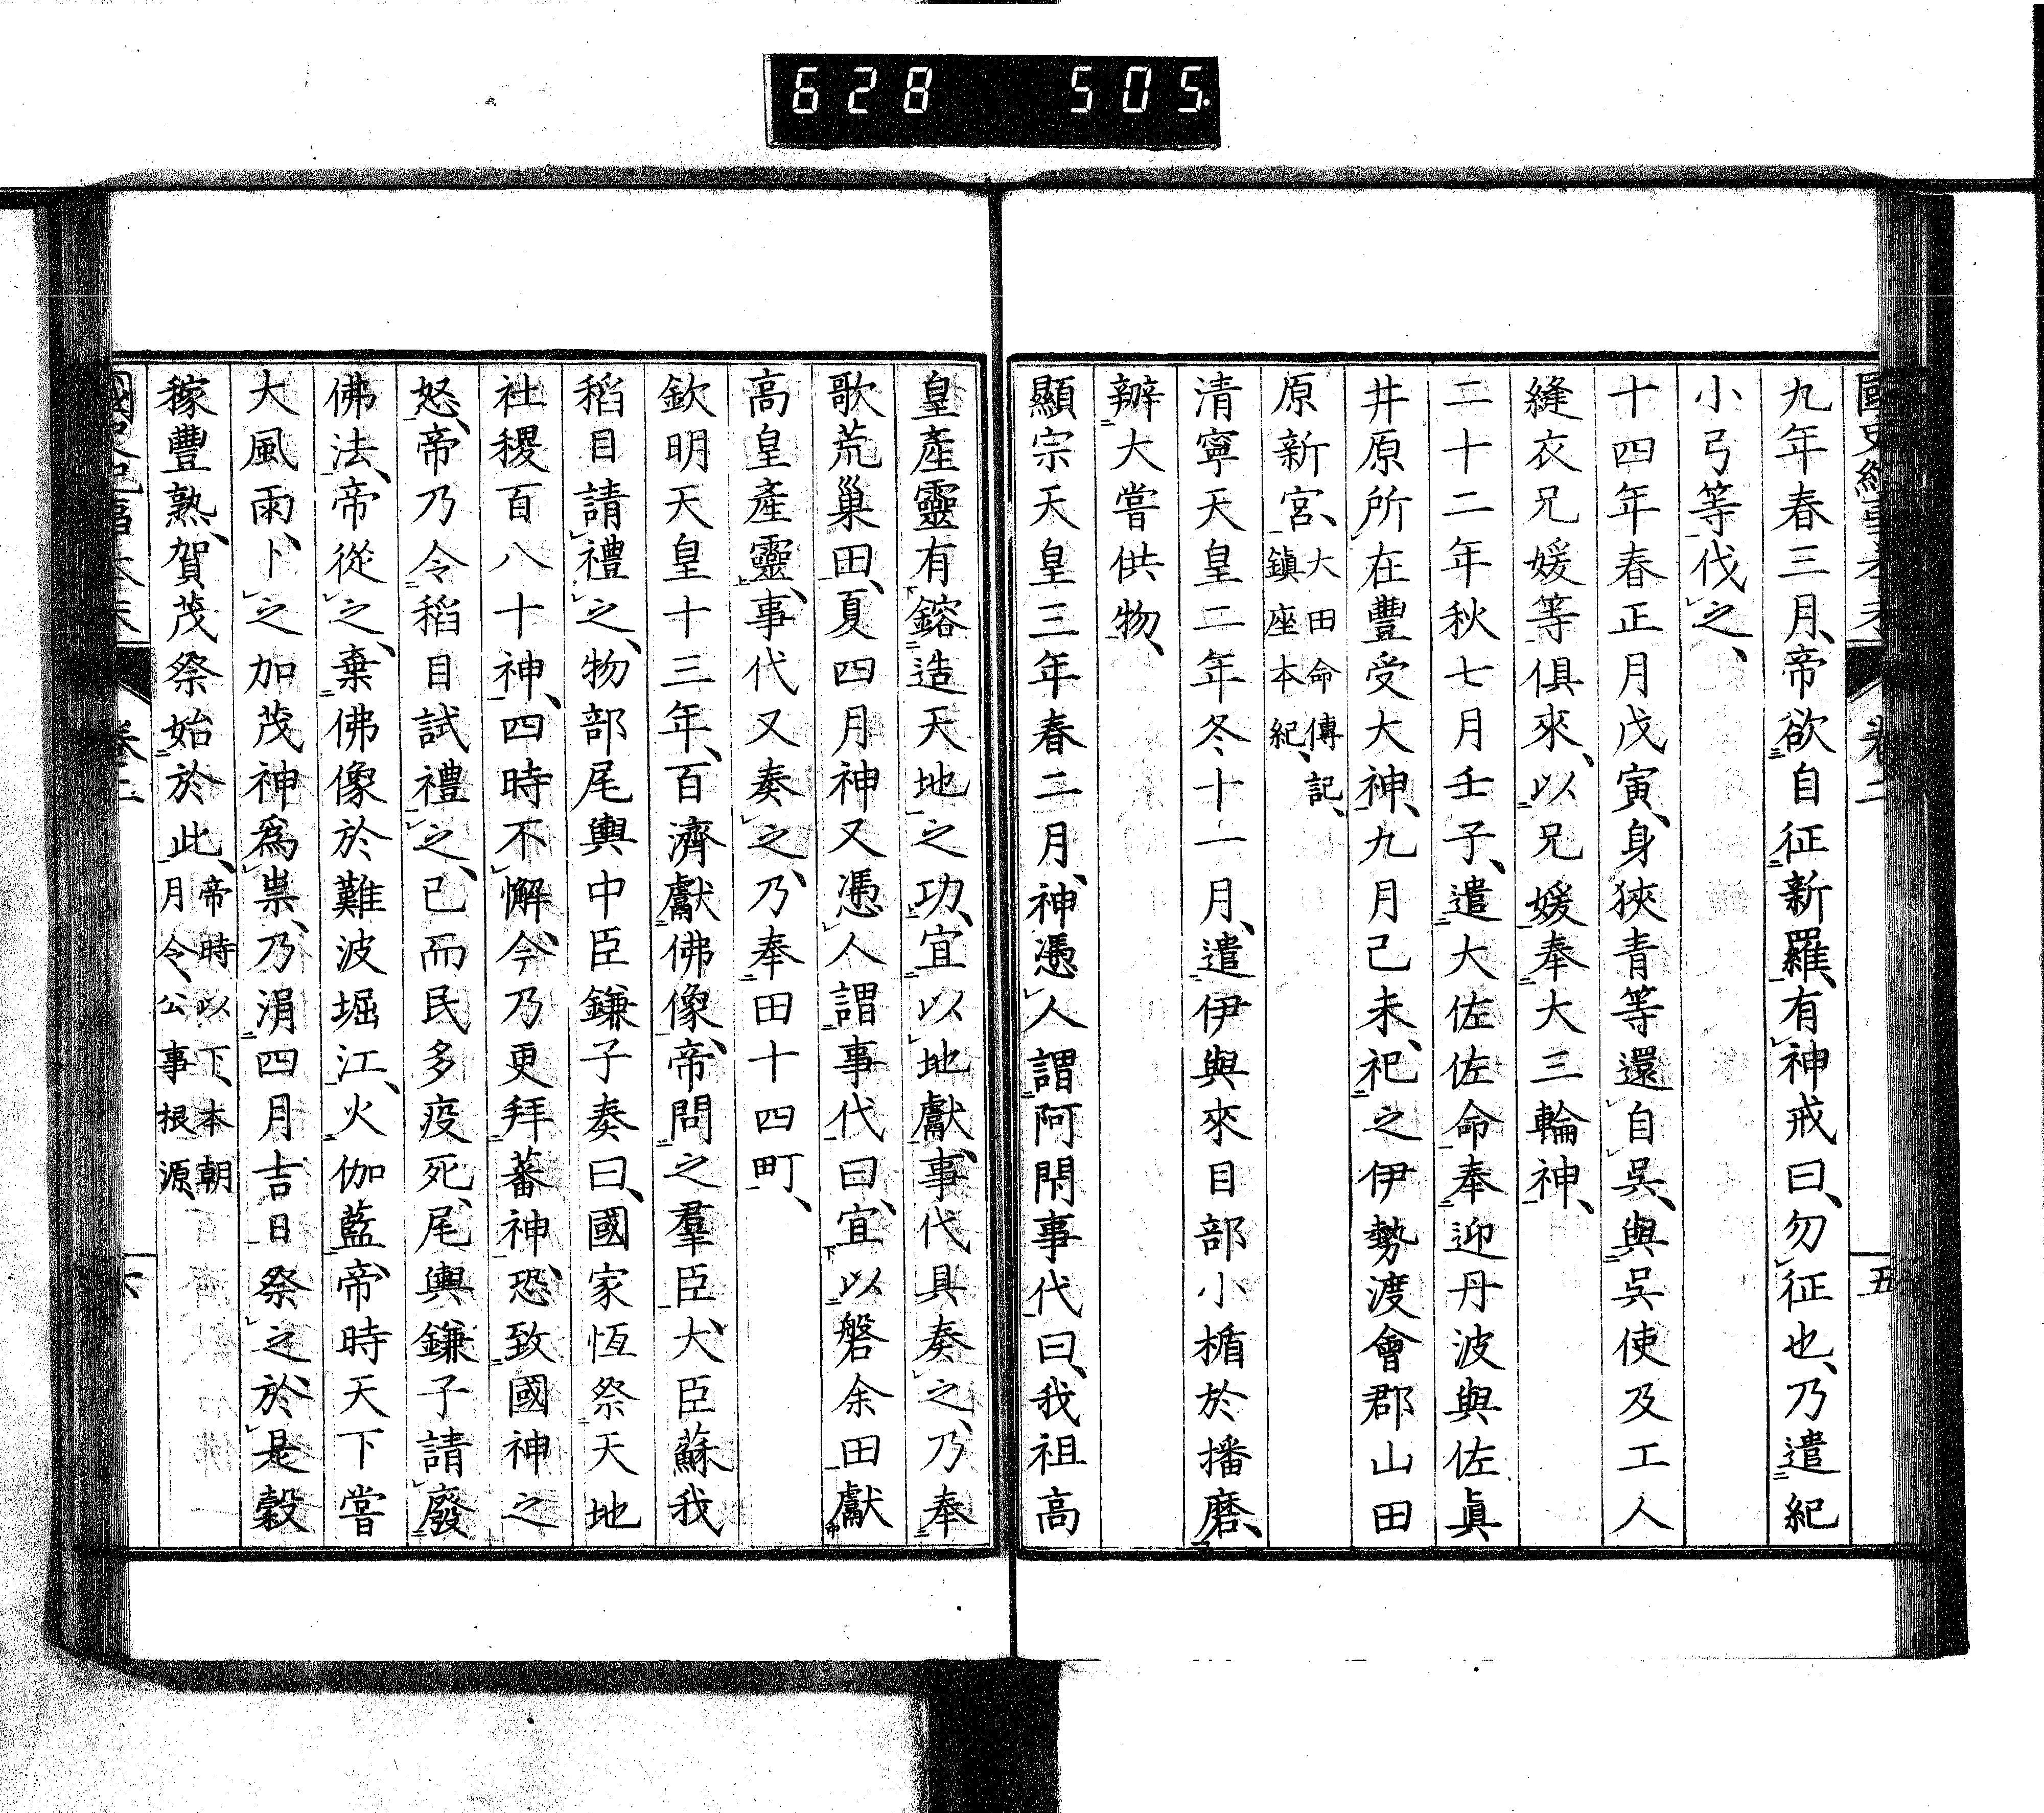 628 505.
國史紀事本末 卷二 五
九年春三月、帝欲自征新羅、有神戒曰、勿征也、乃遣紀
小弓等伐之、
十四年春正月戊寅、身狹青等還自呉、與呉使及工人
縫衣兄媛等俱來、以兄媛奉大三輪神、
二十二年秋七月壬子、遣大佐佐命奉迎丹波與佐眞
井原所在豐受大神、九月己未、祀之伊勢渡會郡山田
原新宮、大田命傳記、鎮座本紀、
清寧天皇二年冬十一月、遣伊與來目部小楯於播磨、
辦大嘗供物、
顯宗天皇三年春二月、神憑人謂阿閉事代曰、我祖高
皇產靈有鎔造天地之功、宜以地獻、事代具奏之、乃奉
歌荒巢田、夏四月神又憑人謂事代曰、宜以磐余田獻
高皇產靈、事代又奏之、乃奉田十四町、
欽明天皇十三年、百濟獻佛像、帝問之羣臣、大臣蘇我
稻目請禮之、物部尾輿中臣鎌子奏曰、國家恆祭天地
社稷百八十神、四時不懈、今乃更拜蕃神、恐致國神之
怒、帝乃令稻目試禮之、已而民多疫死、尾輿鎌子請廢
佛法、帝從之、棄佛像於難波堀江、火伽藍、帝時天下嘗
大風雨、卜之加茂神爲祟、乃涓四月吉日祭之、於是穀
稼豐熟、賀茂祭始於此、帝時以下、本朝月令、公事根源、
國史紀事本末 卷二 六